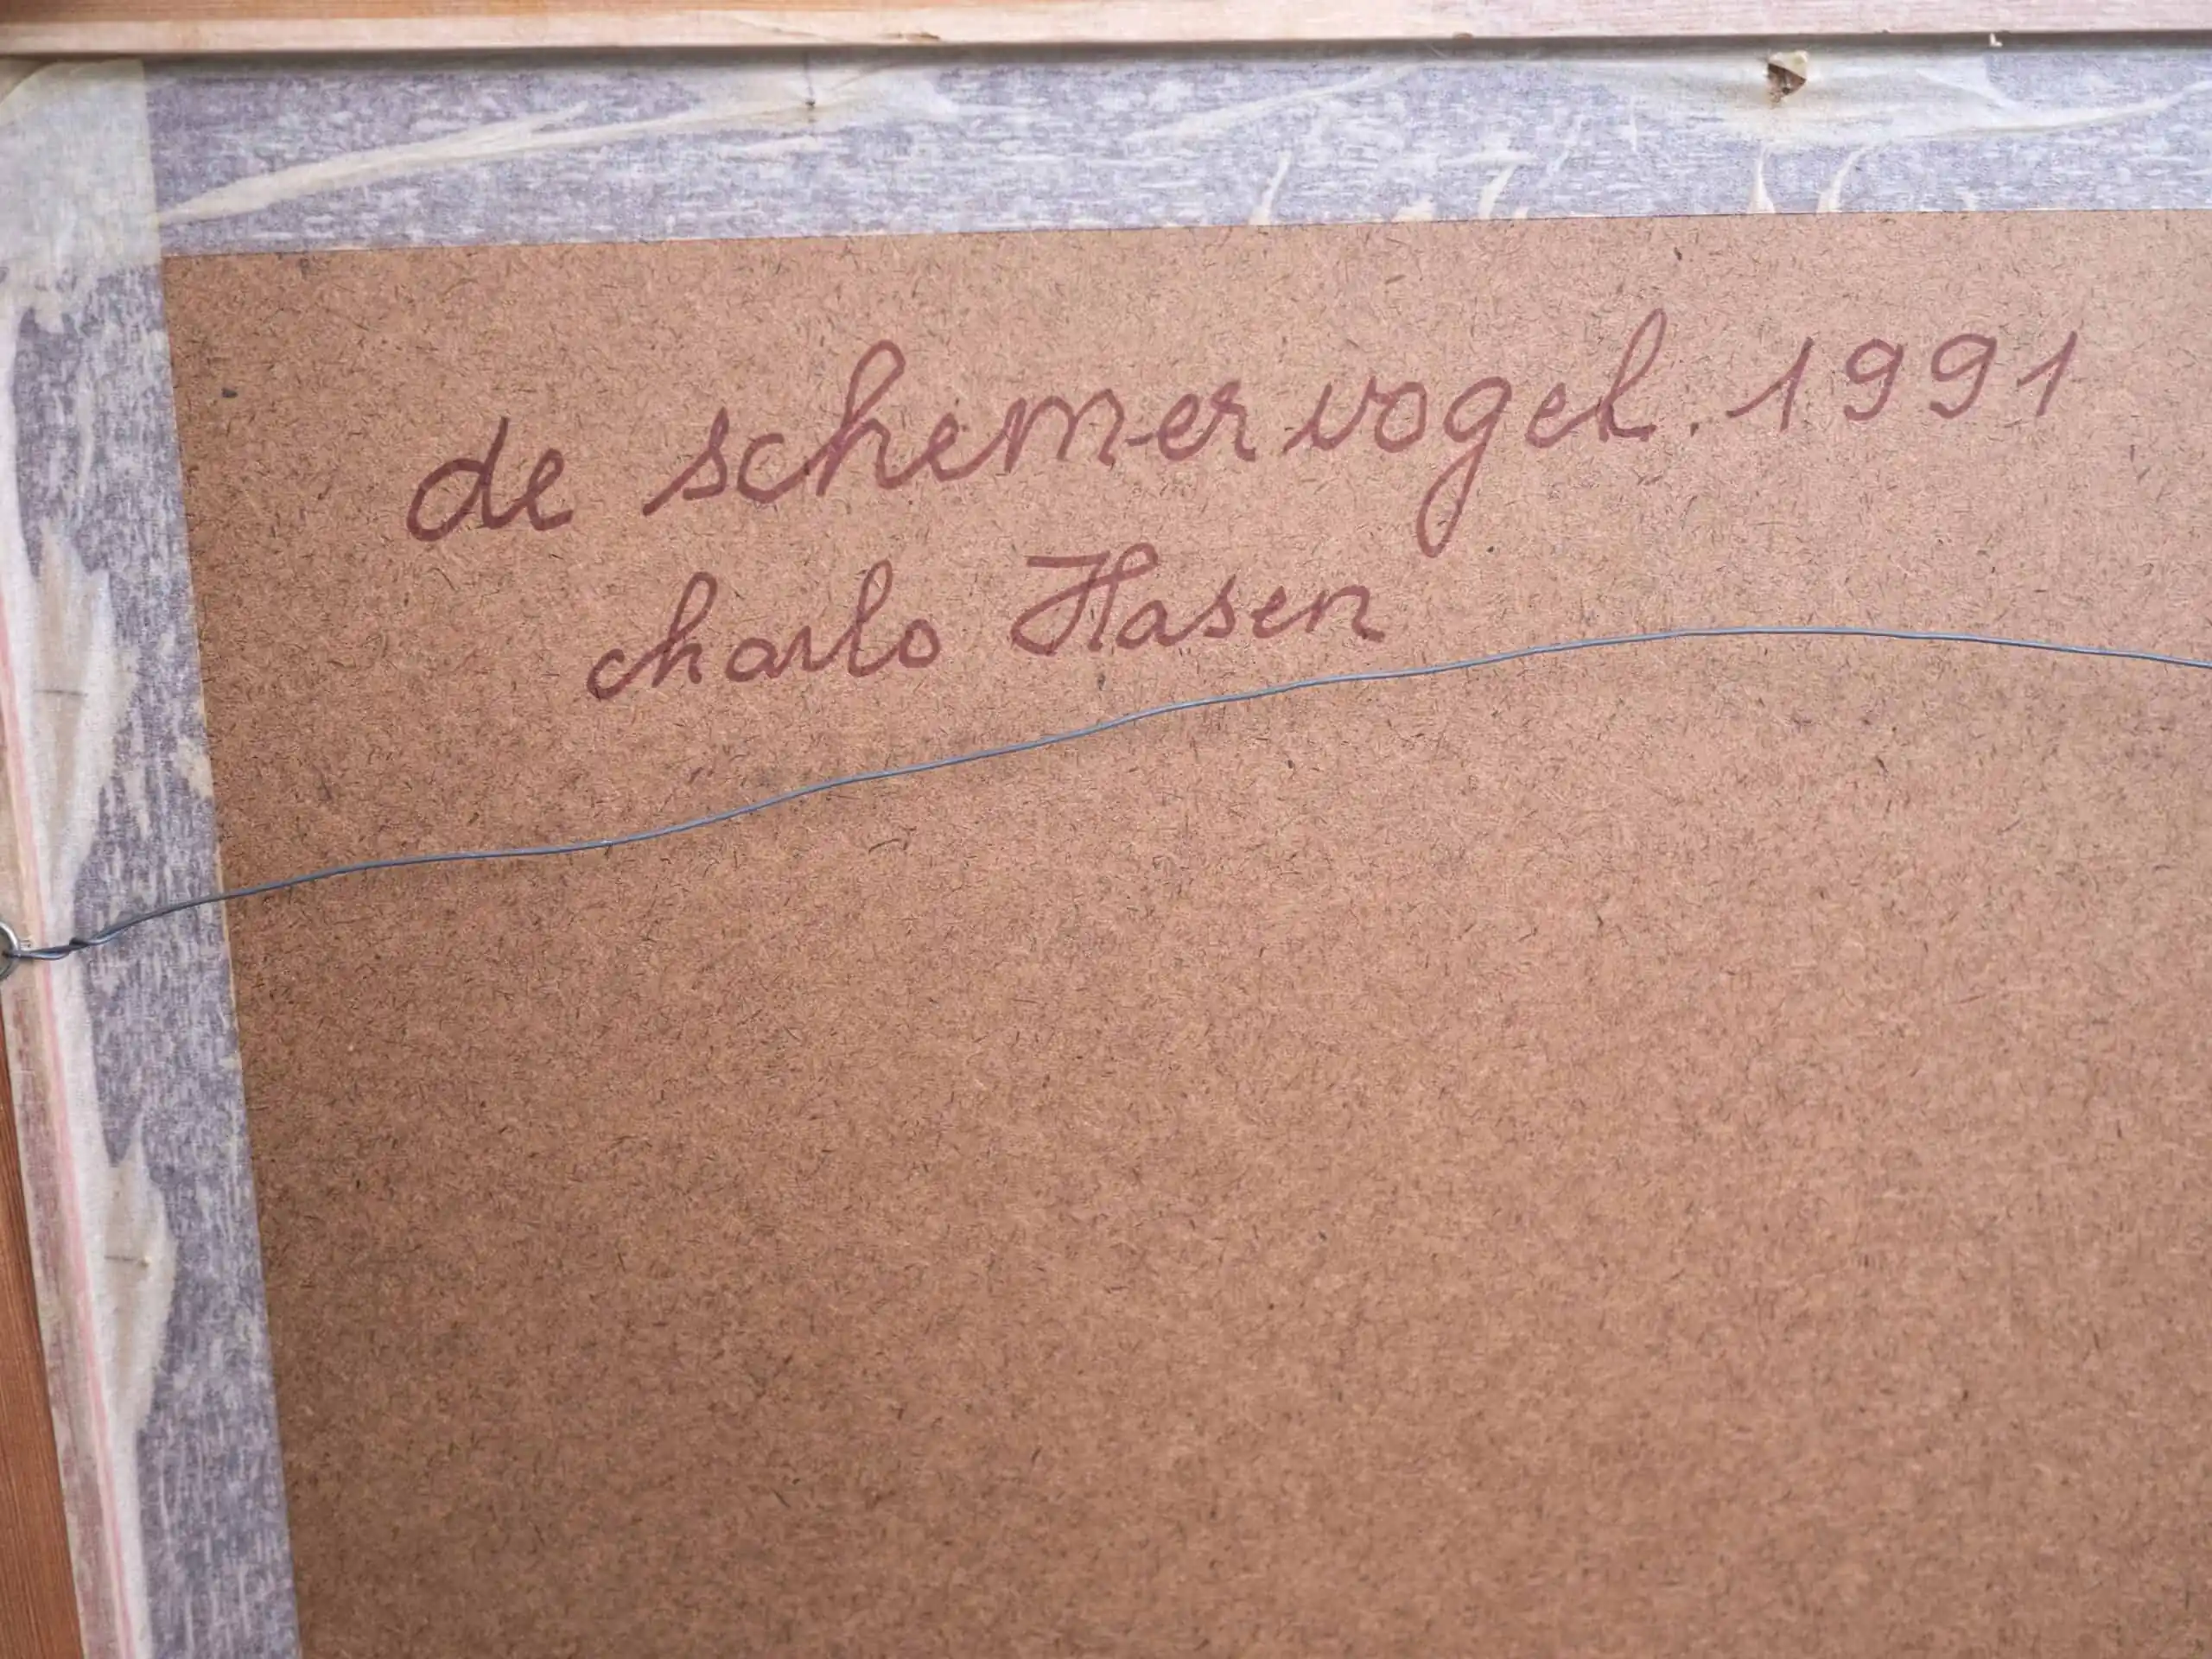 de schemervogel. 1991
charlo Hasen